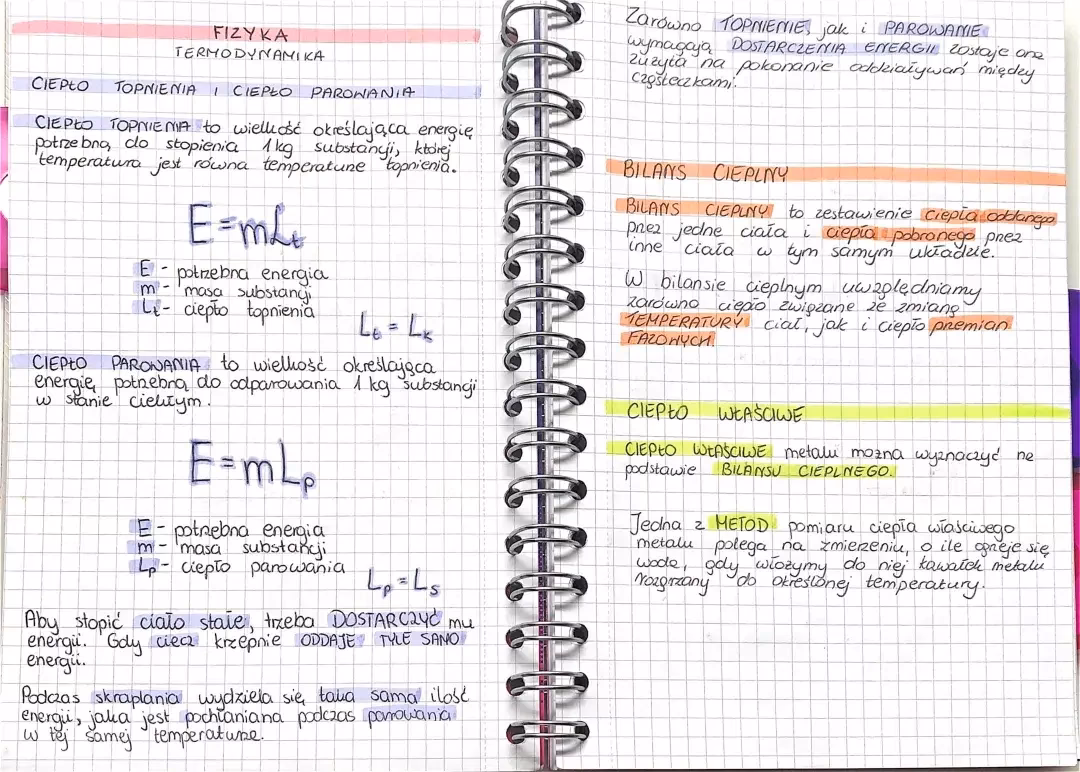 FIZYKA
TERMODYNAMIKA
CIEPŁO TOPNIENIA I CIEPŁO PAROWANIA
CIEPŁO TOPNIENIA to wielkość określająca energię
potrzebną do stopienia 1kg substancji, której
temperatura jest równa temperaturze topnienia.
E=mLt
E - potrzebna energia
m - masa substancji
Lt - ciepło topnienia
Lt = Lk
CIEPŁO PAROWANIA to wielkość określająca
energię potrzebną do odparowania 1 kg substancji
w stanie ciekłym.
E=mLp
E - potrzebna energia
m - masa substancji
Lp - ciepło parowania
Lp = Ls
Aby stopić ciało stałe, trzeba DOSTARCZYĆ mu
energii. Gdy ciecz krzepnie ODDAJE TYLE SAMO
energii.
Podczas skraplania wydziela się taka sama ilość
energii, jaka jest pochłaniana podczas parowania
w tej samej temperaturze.
Zarówno TOPNIENIE, jak i PAROWANIE
wymagają DOSTARCZENIA ENERGII zostaje ona
zużyta na pokonanie oddziaływań między
cząsteczkami.
BILANS CIEPLNY
BILANS CIEPLNY to zestawienie ciepła oddanego
przez jedne ciała i ciepła pobranego przez
inne ciała w tym samym układzie.
W bilansie cieplnym uwzględniamy
zarówno ciepło związane ze zmianą
TEMPERATURY ciał, jak i ciepło przemian
FAZOWYCH.
CIEPŁO WŁAŚCIWE
CIEPŁO WŁAŚCIWE metalu można wyznaczyć na
podstawie BILANSU CIEPLNEGO.
Jedna z METOD pomiaru ciepła właściwego
metalu polega na zmierzeniu, o ile ogrzeje się
woda, gdy włożymy do niej kawałek metalu
rozgrzany do określonej temperatury.